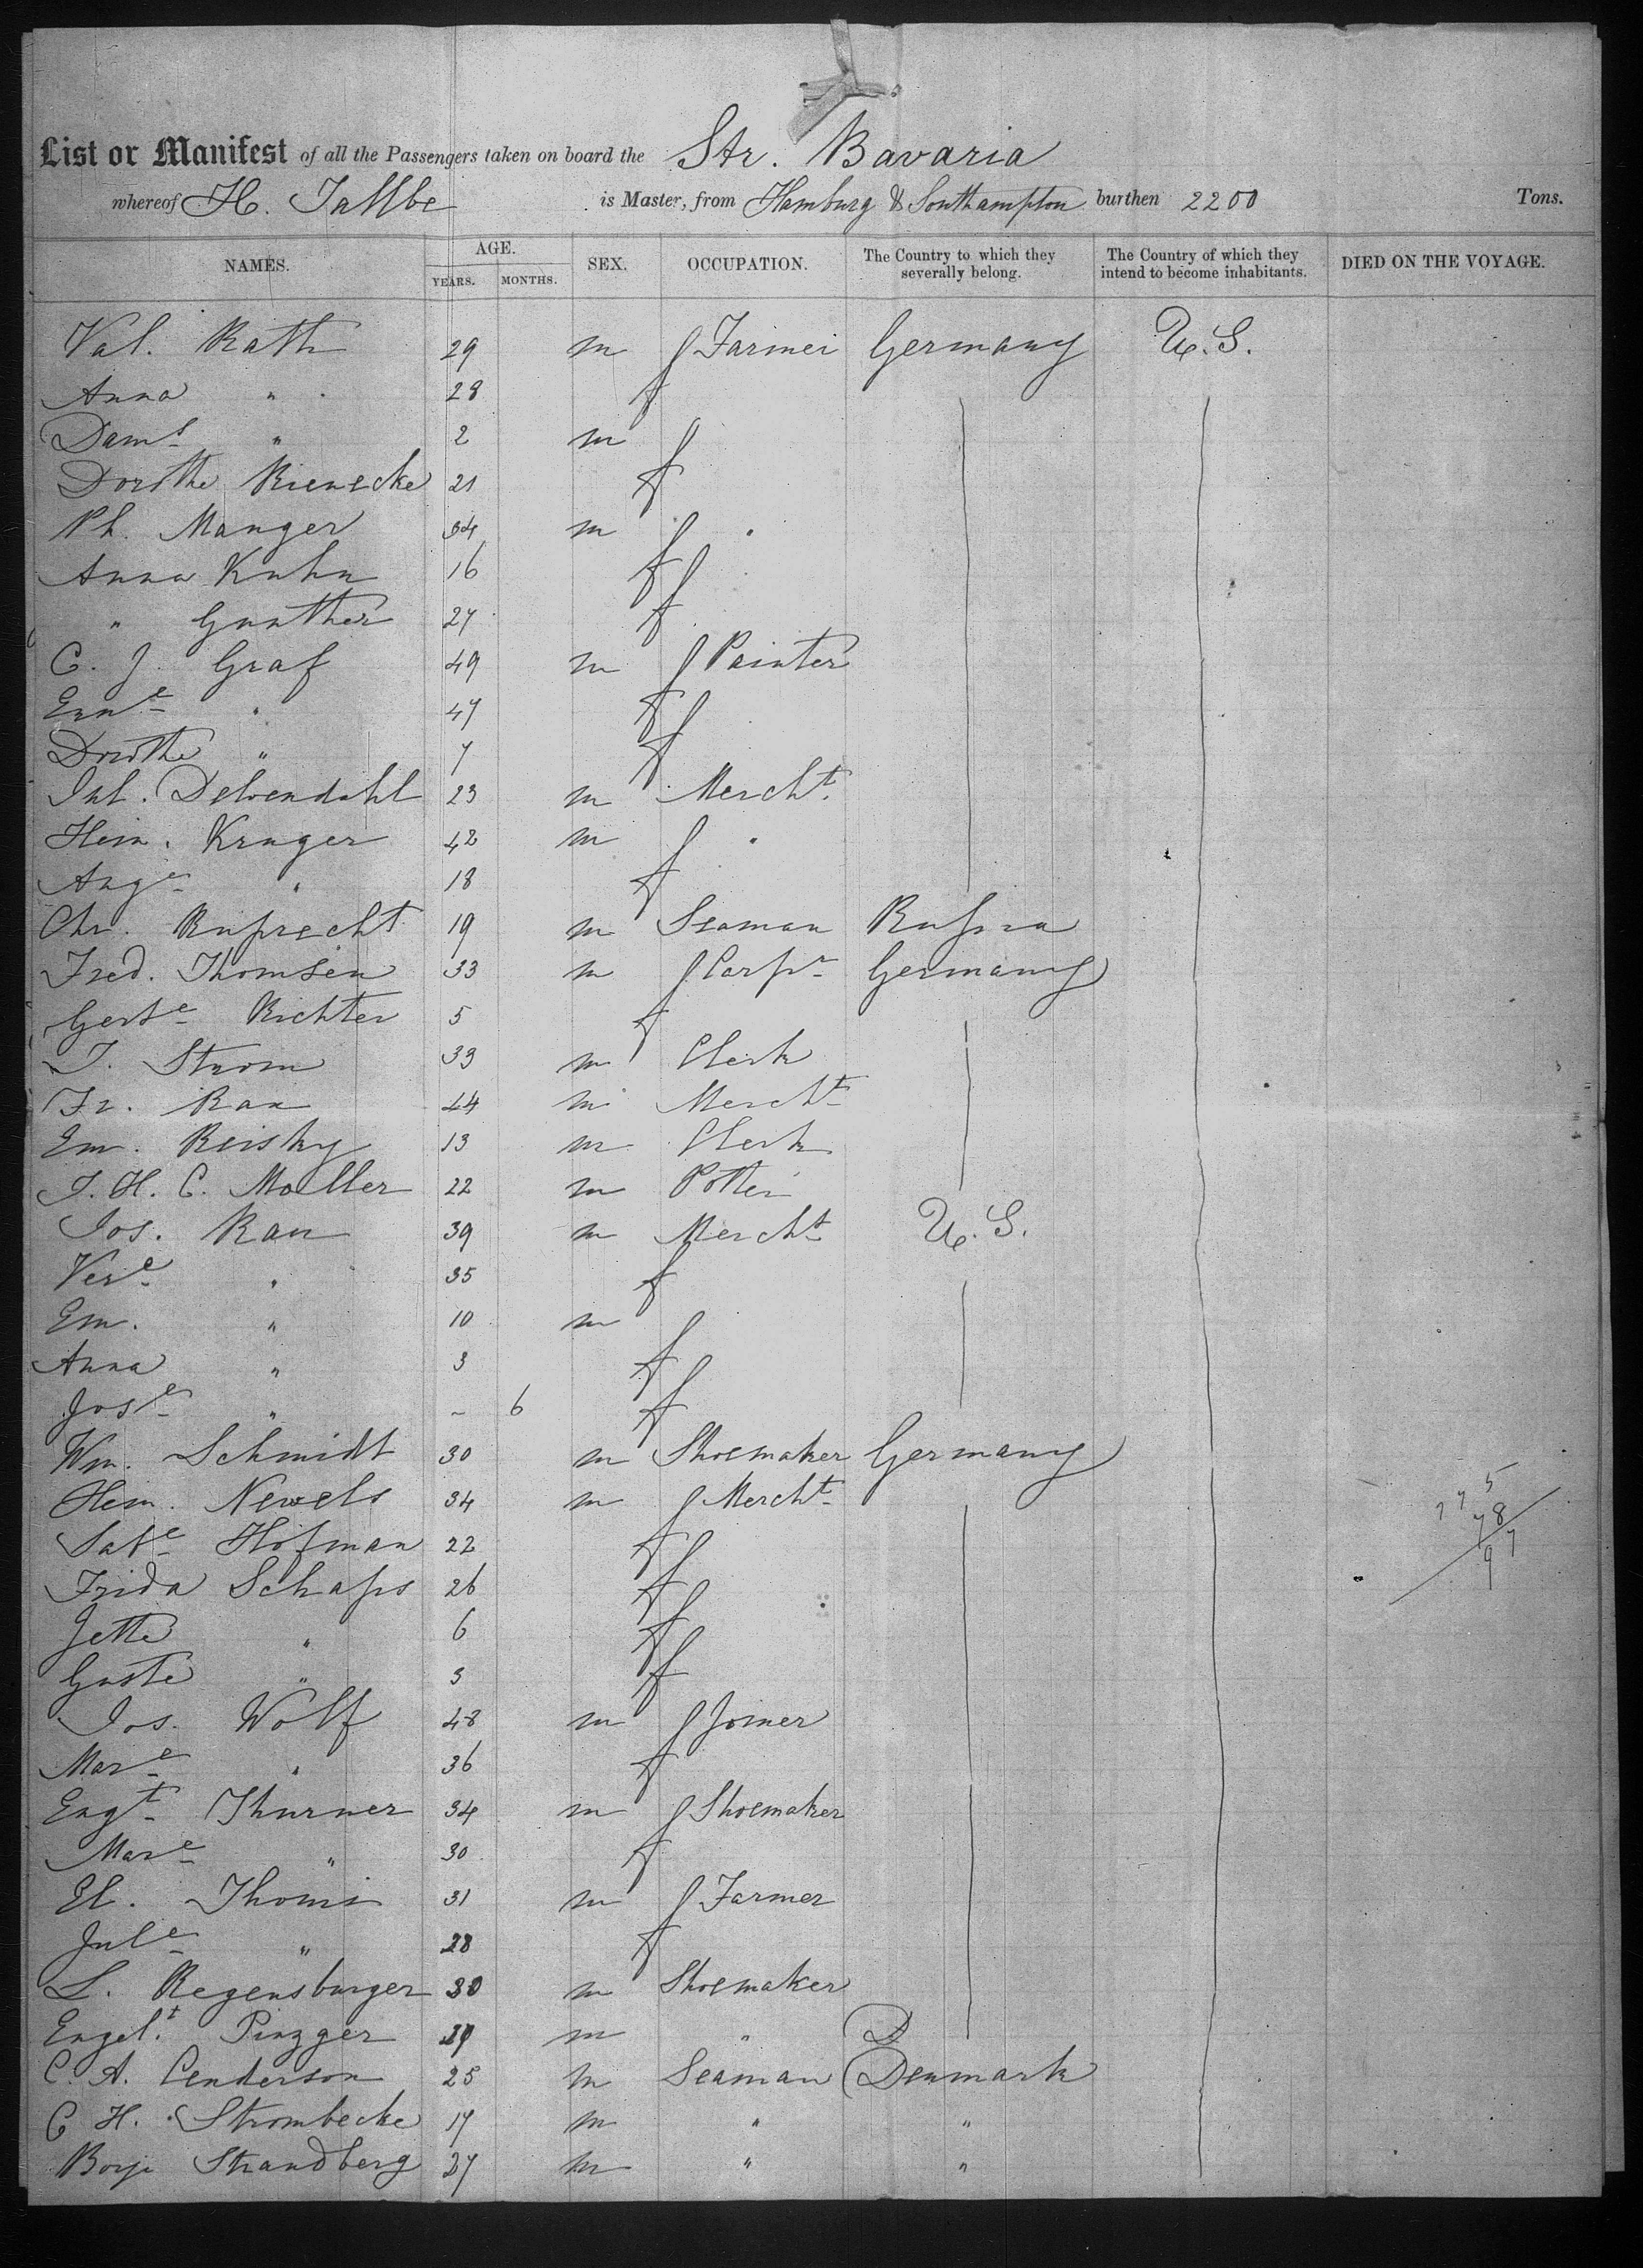 List or Manifest of all the Passengers taken on board the Str. Bavaria
whereof H. is Master, from Hamburg & Southampton burthen 2200 Tons.
NAMES. AGE. YEARS. MONTHS. SEX. OCCUPATION. The Country to which they severally belong. The Country of which they intend to become inhabitants. DIED ON THE VOYAGE.
Val. Rath 29 m Farmer Germany U.S.
Anna " 28 f
Dams " 2 m
Dorothe Rienecke 21 f
Ph. Manger 34 m "
Anna Kuhn 16 f
" Gunther 27 f
C. J. Graf 49 m Painter
Erne " 47 f
Dorothe " 7 f
Jul. Delvendahl 23 m Mercht
Hein. Kruger 42 m "
Auge " 18 f
Chr. Ruprecht 19 m Seaman Russia
Fred. Thomsen 33 m Carpr Germany
Gerte Richter 5 f
T. Strom 33 m Clerk
Fr. Rau 44 m Mercht
Em. Reisky 13 m Clerk
J. H. C. Moller 22 m Potter
Jos. Rau 39 m Mercht U.S.
Vere " 35 f
Em. " 10 m
Anna " 3 f
Jose " - 6 f
Wm. Schmidt 30 m Shoemaker Germany
Hein. Newels 34 m Mercht
Hofman 22 f
Frida Schaps 26 f
Jette " 6 f
Guste " 3 f
Jos. Wolf 48 m Joiner
Mare " 36 f
Engt Thurner 34 m Shoemaker
Mare " 30 f
El. Thoms 31 m Farmer
Jule " 28 f
L. Regensburger 30 m Shoemaker
Engelt Pinzger 29 m "
C. A. Cenderson 25 m Seaman Denmark
C H. Strombecke 17 m " "
Borje Strandberg 27 m " "